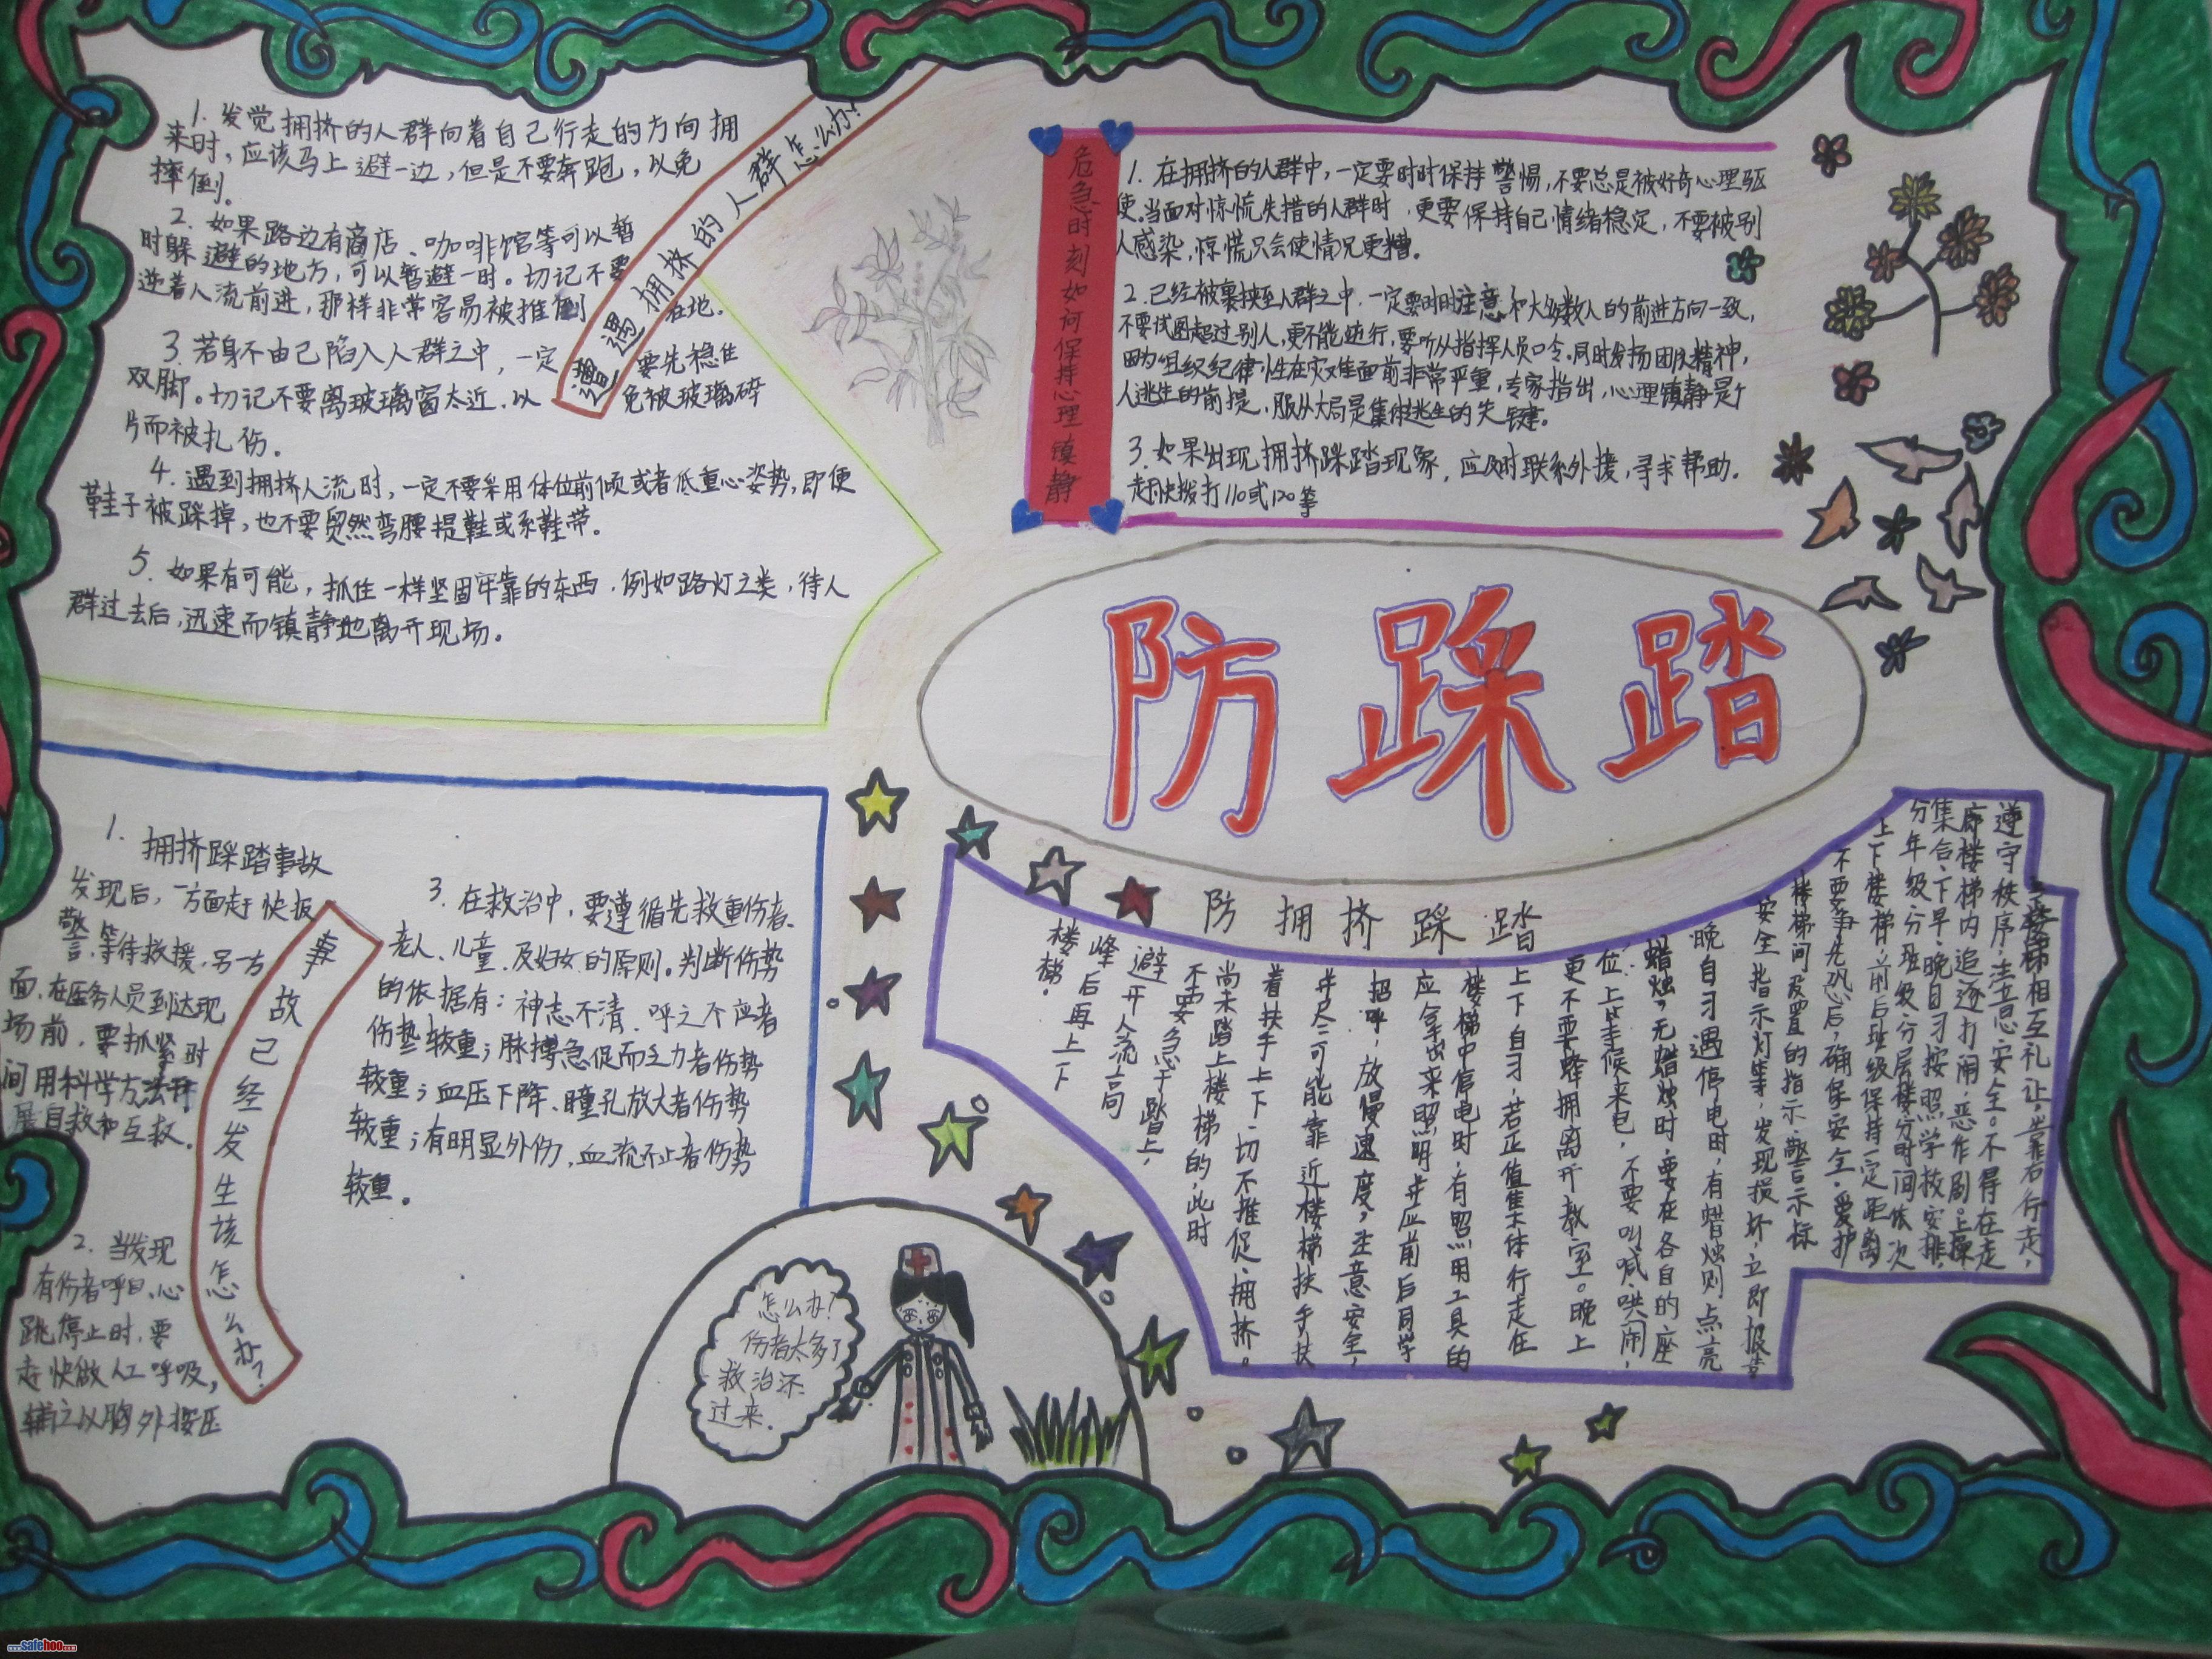 遭遇拥挤的人群怎么办?
1. 发觉拥挤的人群向着自己行走的方向拥
来时，应该马上避一边，但是不要奔跑，以免
摔倒。
2. 如果路边有商店、咖啡馆等可以暂
时躲避的地方，可以暂避一时。切记不要
逆着人流前进，那样非常容易被推倒在地.
3. 若身不由己陷入人群之中，一定要先稳住
双脚。切记不要离玻璃窗太近，以免被玻璃碎
片而被扎伤。
4. 遇到拥挤人流时，一定不要采用体位前倾或者低重心姿势，即便
鞋子被踩掉，也不要贸然弯腰提鞋或系鞋带。
5. 如果有可能，抓住一样坚固牢靠的东西，例如路灯之类，待人
群过去后，迅速而镇静地离开现场。
危急时刻如何保持心理镇静
1. 在拥挤的人群中，一定要时时保持警惕，不要总是被好奇心理驱
使。当面对惊慌失措的人群时，更要保持自己情绪稳定，不要被别
人感染，惊慌只会使情况更糟。
2. 已经被裹挟至人群之中，一定要时时注意和大多数人的前进方向一致，
不要试图超过别人，更不能逆行，要听从指挥人员口令。同时发扬团队精神，
因为组织纪律性在灾难面前非常严重，专家指出，心理镇静是个
人逃生的前提，服从大局是集体逃生的关键。
3. 如果出现拥挤踩踏现象，应及时联系外援，寻求帮助.
赶快拨打110或120等
防踩踏
防拥挤踩踏
上下楼梯相互礼让，靠右行走，
遵守秩序，注意安全。不得在走
廊楼梯内追逐打闹，恶作剧。上操
集合、下早、晚自习按照学校安排，
分年级分班级，分层楼分时间依次
上下楼梯，前后班级保持一定距离
不要争先恐后，确保安全。爱护
楼梯间设置的指示、警示标
安全指示灯等，发现损坏，立即报告
晚自习遇停电时，有蜡烛则点亮
蜡烛，无蜡烛时，要在各自的座
位上坐候来电，不要叫喊、哄闹，
更不要蜂拥离开教室。晚上
上下自习，若正值集体行走在
楼梯中停电时，有照明工具的
应拿出来照明，并应前后同学
招呼，放慢速度，注意安全，
并尽可能靠近楼梯扶手扶
着扶手上下，切不推促、拥挤。
尚未踏上楼梯的，此时
不要急于踏上，
避开人流高
峰后再上下
楼梯.
事故已经发生该怎么办?
1. 拥挤踩踏事故
发现后，一方面赶快报
警，等待救援，另一方
面，在医务人员到达现
场前，要抓紧时
间用科学方法开
展自救和互救.
2. 当发现
有伤者呼吸、心
跳停止时，要
赶快做人工呼吸，
辅之以胸外按压
3. 在救治中，要遵循先救重伤者、
老人、儿童、及妇女的原则。判断伤势
的依据有：神志不清、呼之不应者
伤势较重；脉搏急促而乏力者伤势
较重；血压下降、瞳孔放大者伤势
较重；有明显外伤，血流不止者伤势
较重。
怎么办?
伤者太多了
救治不
过来.
safehoo